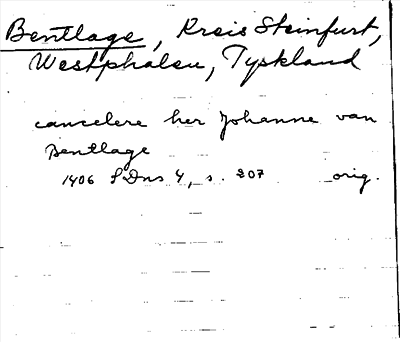 Bentlage, Kreis Steinfurt,
Westphalen, Tyskland
cancelere her Johanne van
Bentlage
1406 SDns 4, s. 207 orig.